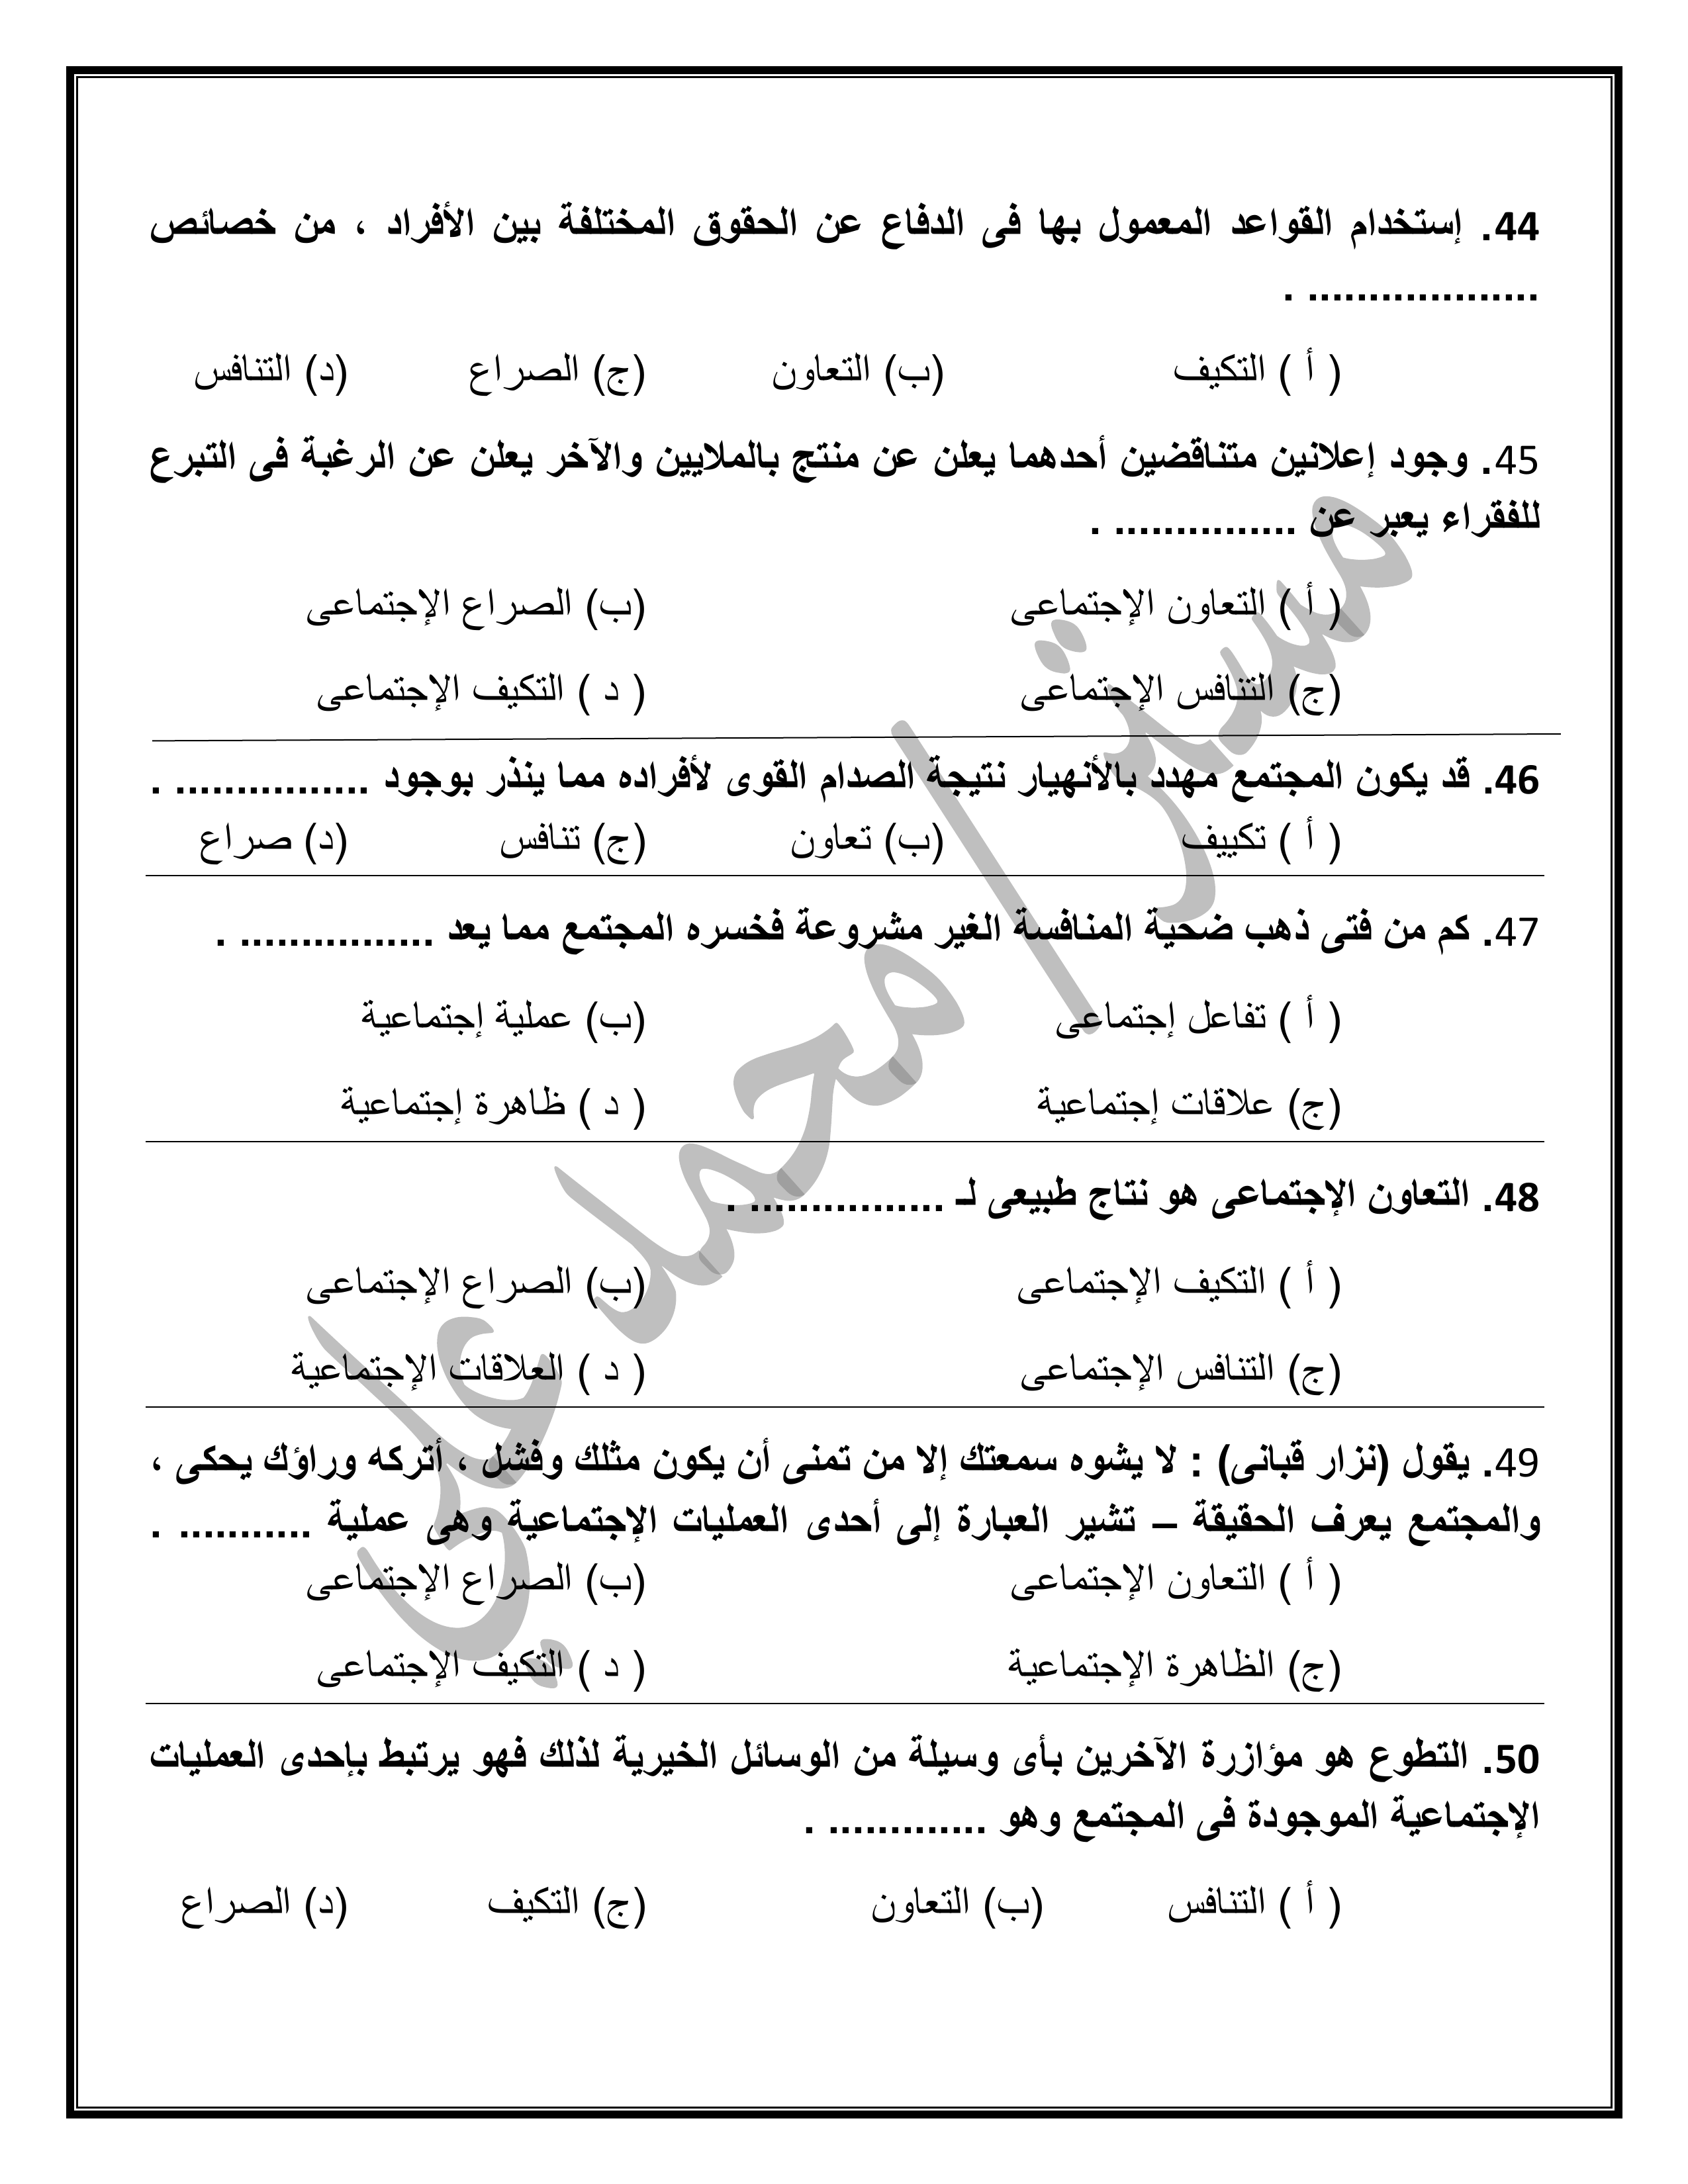 44. إستخدام القواعد المعمول بها فى الدفاع عن الحقوق المختلفة بين الأفراد ، من خصائص
................... .
( أ ) التكيف (ب) التعاون (ج) الصراع (د) التنافس
45. وجود إعلانين متناقضين أحدهما يعلن عن منتج بالملايين والآخر يعلن عن الرغبة فى التبرع
للفقراء يعبر عن ............... .
( أ ) التعاون الإجتماعى (ب) الصراع الإجتماعى
(ج) التنافس الإجتماعى ( د ) التكيف الإجتماعى
46. قد يكون المجتمع مهدد بالأنهيار نتيجة الصدام القوى لأفراده مما ينذر بوجود ................ .
( أ ) تكييف (ب) تعاون (ج) تنافس (د) صراع
47. كم من فتى ذهب ضحية المنافسة الغير مشروعة فخسره المجتمع مما يعد ................ .
( أ ) تفاعل إجتماعى (ب) عملية إجتماعية
(ج) علاقات إجتماعية ( د ) ظاهرة إجتماعية
48. التعاون الإجتماعى هو نتاج طبيعى لـ ................ .
( أ ) التكيف الإجتماعى (ب) الصراع الإجتماعى
(ج) التنافس الإجتماعى ( د ) العلاقات الإجتماعية
49. يقول (نزار قبانى) : لا يشوه سمعتك إلا من تمنى أن يكون مثلك وفشل ، أتركه وراؤك يحكى ،
والمجتمع يعرف الحقيقة – تشير العبارة إلى أحدى العمليات الإجتماعية وهى عملية ........... .
( أ ) التعاون الإجتماعى (ب) الصراع الإجتماعى
(ج) الظاهرة الإجتماعية ( د ) التكيف الإجتماعى
50. التطوع هو مؤازرة الآخرين بأى وسيلة من الوسائل الخيرية لذلك فهو يرتبط بإحدى العمليات
الإجتماعية الموجودة فى المجتمع وهو ............. .
( أ ) التنافس (ب) التعاون (ج) التكيف (د) الصراع
مستر/محمد علي